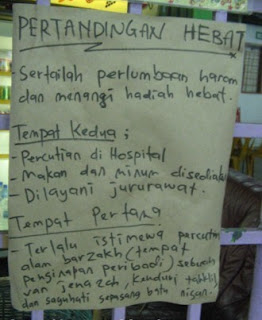 PERTANDINGAN HEBAT
- Sertailah perlumbaan haram
dan menangi hadiah hebat.
Tempat Kedua;
- Percutian di Hospital
- Makan dan minum disediakan
- Dilayani jururawat.
Tempat Pertama
- Terlalu istimewa percutian
alam barzakh (tempat
penginapan peribadi) sebuah
van jenazah, kenduri tahlil,
dan saguhati sepasang batu nisan.